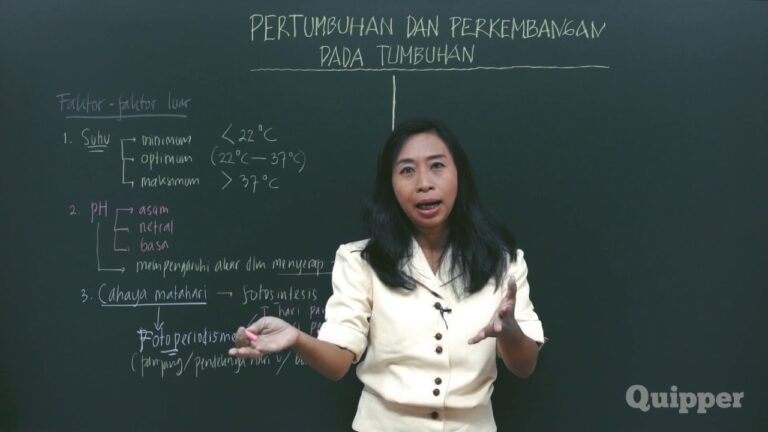 PERTUMBUHAN DAN PERKEMBANGAN
PADA TUMBUHAN
Faktor-faktor luar
1. Suhu
minimum < 22°C
optimum (22°C — 37°C)
maksimum > 37°C
2. pH
asam
netral
basa
mempengaruhi akar dlm menyerap
3. Cahaya matahari → fotosintesis
hari
Fotoperiodisme
(panjang/pendeknya hari
Quipper